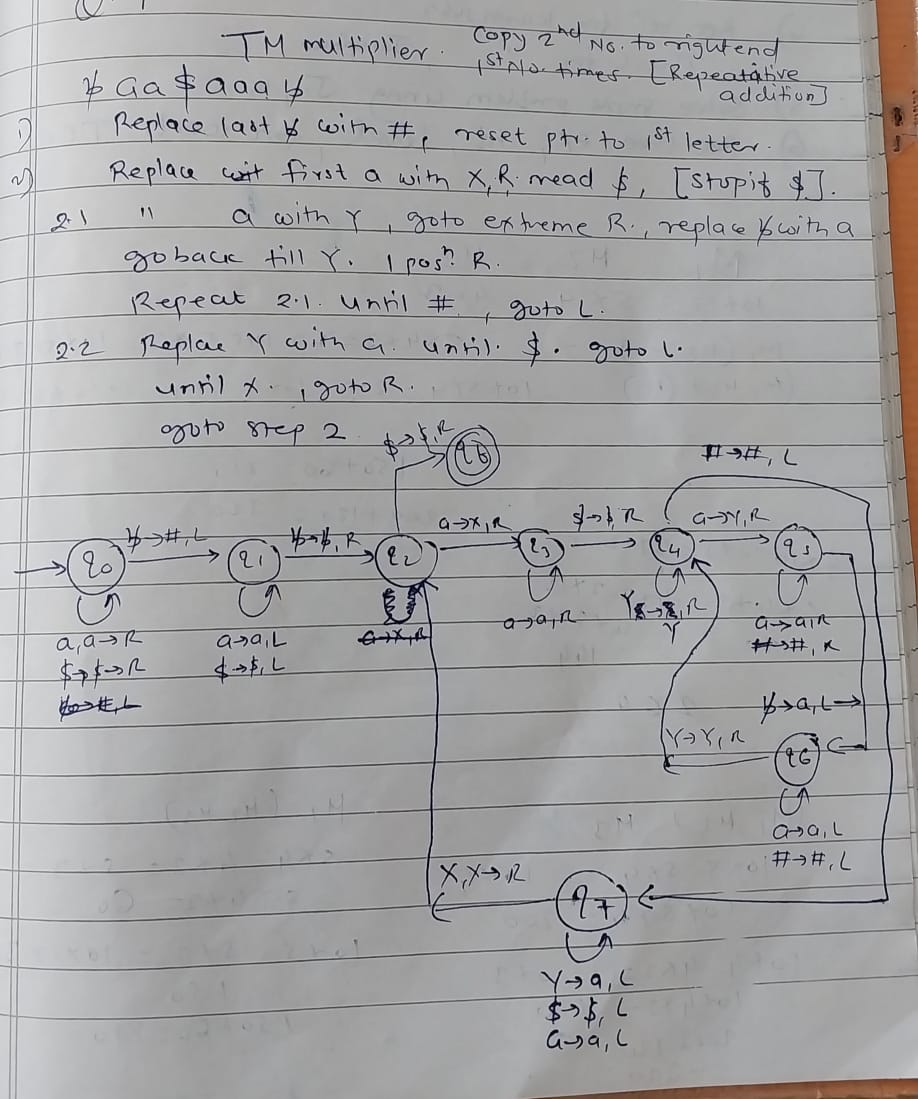 TM multiplier. Copy 2nd No. to right end
1st No. times. [Repeatative
addition]
ƀ aa $ aaa ƀ
1) Replace last ƀ with #, reset ptr. to 1st letter.
2) Replace first a with X, R. read $, [Stop if $].
2.1 " a with Y, goto extreme R., replace ƀ with a
go back till Y. 1 posn. R.
Repeat 2.1. until #, goto L.
2.2 Replae Y with a. until. $. goto L.
until X., goto R.
goto step 2
$→$, R
q6
#→#, L
ƀ→#, L
ƀ→ƀ, R
a→X, R
$→$, R
a→Y, R
q0
q1
q2
q3
q4
q5
a,a→R
$→$→R
ƀ→#, L
a→a, L
$→$, L
a→X, R
a→a, R
Y→Y, R
a→a, R
#→#, R
ƀ→a, L→
Y→Y, R
q6
a→a, L
#→#, L
X, X→R
q7
Y→a, L
$→$, L
a→a, L